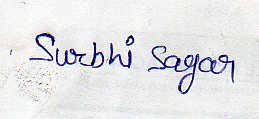 Surbhi Sagar